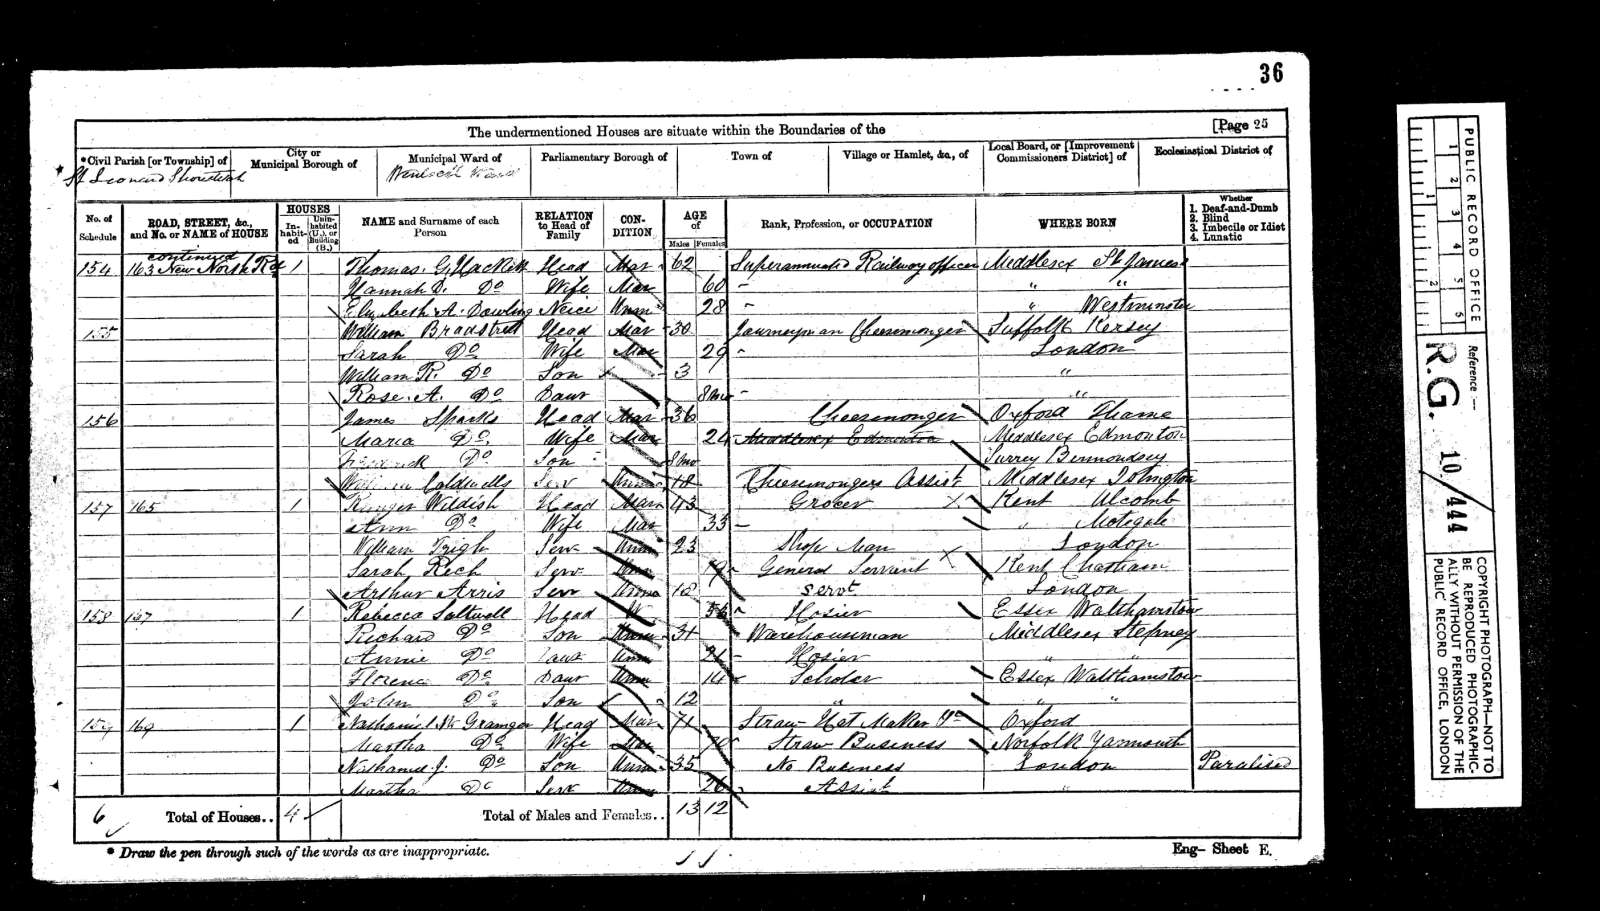 36
The undermentioned Houses are situate within the Boundaries of the
[Page 25
*Civil Parish [or Township] of
St Leonard Shoreditch
City or Municipal Borough of
Municipal Ward of
Ward
Parliamentary Borough of
Town of
Village or Hamlet, &c., of
Local Board, or [Improvement Commissioners District] of
Ecclesiastical District of
No. of Schedule
ROAD, STREET, &c., and No. or NAME of HOUSE
HOUSES
In-habit-ed
Unin-habited (U.), or Building (B.)
NAME and Surname of each Person
RELATION to Head of Family
CON-DITION
AGE of
Males
Females
Rank, Profession, or OCCUPATION
WHERE BORN
Whether
1. Deaf-and-Dumb
2. Blind
3. Imbecile or Idiot
4. Lunatic
continued
154 163 New North Rd 1 Thomas G. Hackett Head Mar 62 Superannuated Railway officer Middlesex St James
Hannah D. Do Wife Mar 60 - " "
Elizabeth A. Dowling Neice Unm 28 - " Westminster
155 William Bradstreet Head Mar 30 Journeyman Cheesemonger Suffolk Kersey
Sarah Do Wife Mar 29 - London
William R. Do Son 3 "
Rose. A. Do Daur 8mo - "
156 James Sparks Head Mar 36 Cheesemonger Oxford Thame
Maria Do Wife Mar 24 Middlesex Edmonton Middlesex Edmonton
Frederick Do Son 8mo Surrey Bermondsey
William Coldwells Serv Unm 18 Cheesemongers Assist Middlesex Islington
157 165 1 Wildish Head Mar 43 Grocer Kent Ulcomb
Ann Do Wife Mar 33 - "
William Serv Unm 23 Shop Man London
Sarah Rech Serv Unm 19 General Servant Kent Chatham
Arthur Arris Serv Unm 18 Servt London
158 167 1 Rebecca Saltwell Head W. 56 Hosier Essex Walthamstow
Richard Do Son Unm 31 Warehouseman Middlesex Stepney
Annie Do Daur Unm 21 Hosier " "
Florence Do Daur Unm 14 Scholar Essex Walthamstow
John Do Son 12 " " "
159 169 1 Nathaniel W Grainger Head Mar 71 Straw Hat Maker Oxford
Martha Do Wife Mar 70 Straw Business Norfolk Yarmouth
Nathaniel J. Do Son Unm 35 No Business London Paralised
Martha Do Serv Unm 26 Assist "
6 Total of Houses.. 4 Total of Males and Females.. 13 12
* Draw the pen through such of the words as are inappropriate.
Eng- Sheet E.
PUBLIC RECORD OFFICE
1 2 3 4 5
1 2
Reference :-
R.G. 10/444
COPYRIGHT PHOTOGRAPH—NOT TO
BE REPRODUCED PHOTOGRAPHIC-
ALLY WITHOUT PERMISSION OF THE
PUBLIC RECORD OFFICE, LONDON